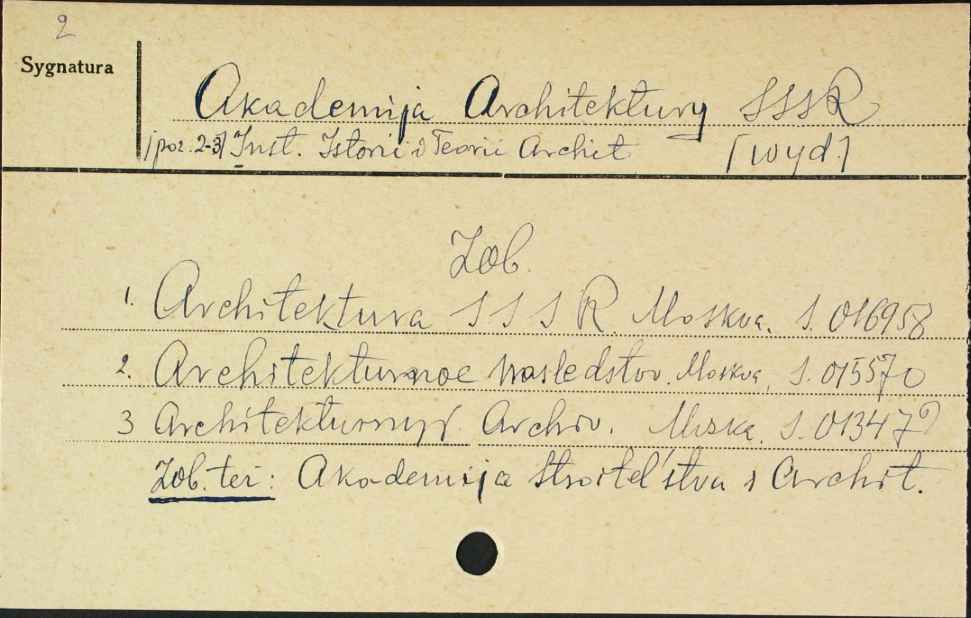 2
Sygnatura
Akademija Architektury SSSR
[poz. 2-3] Inst. Istorii i Teorii Archit [wyd.]
Zob.
1. Architektura SSSR. Moskva. S. 016958
2. Architekturnoe nasledstvo. Moskva, S. 015570
3 Architekturnyj. Archiv. S. 013479
Zob. też: Akademija Stroitel'stva i Archit.